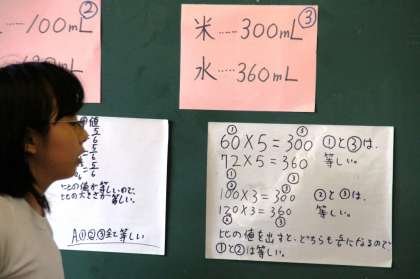 ②
‥‥100mL
380mL
③
米‥‥300mL
水‥‥360mL
値
5/6
比の値が等しいので、
比の大きさが等しい。
A ①②③全て等しい
① ③
60×5=300 ①と③は、
72×5=360 等しい。
① ③
② ③
100×3=300 ②と③は、
120×3=360 等しい。
② ③
比の値を出すと、どちらも5/6になるので
①と②は等しい。